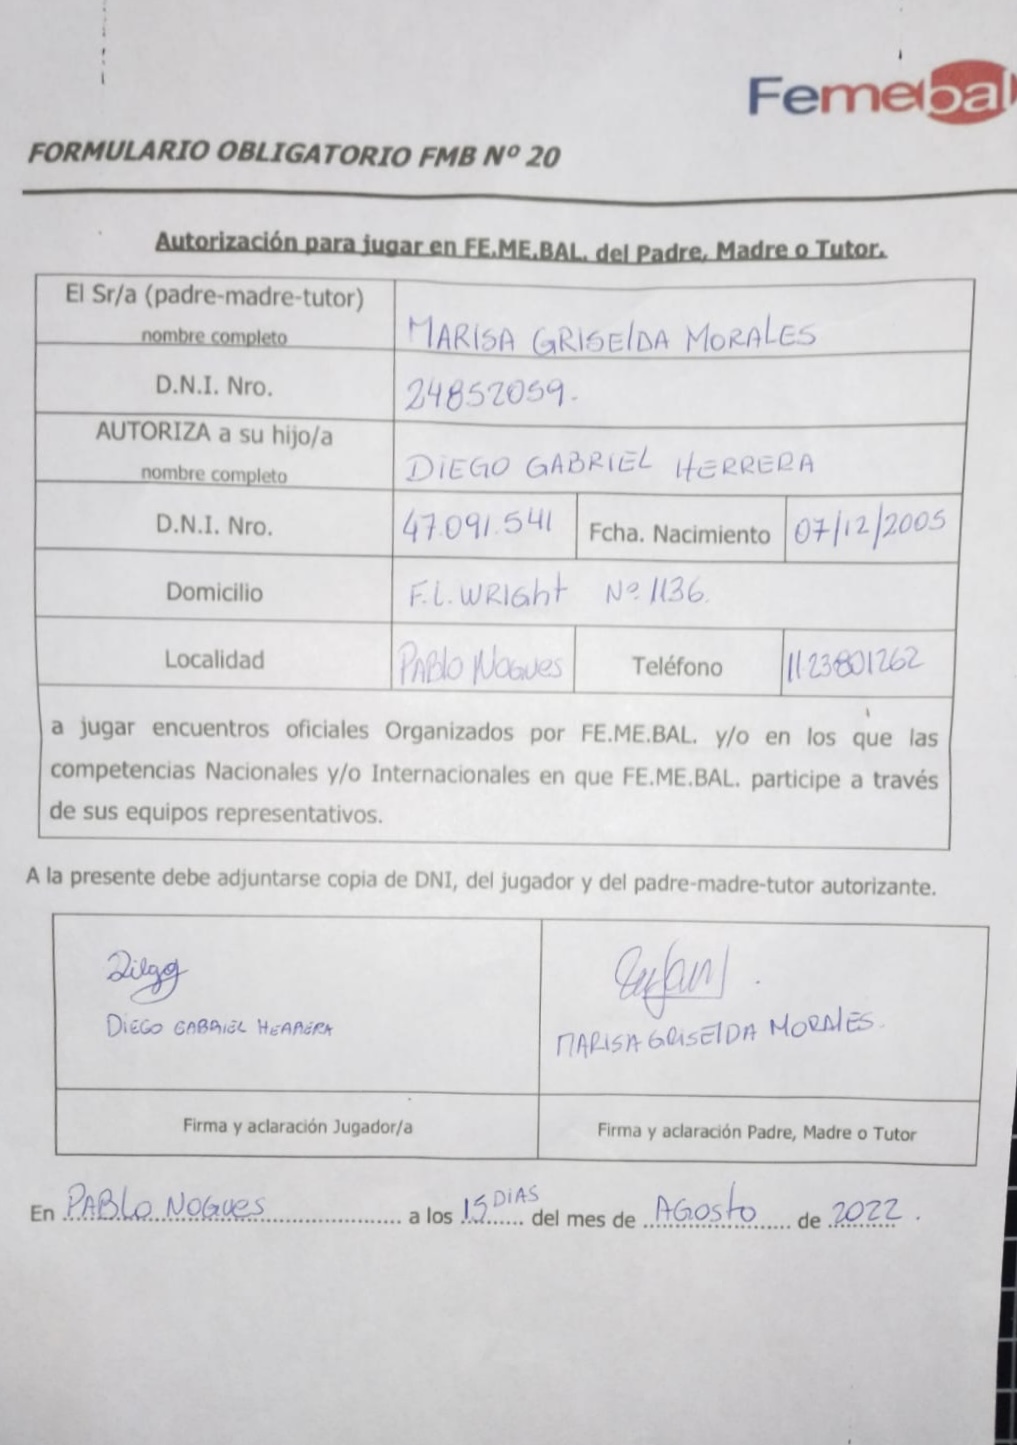 Femebal
FORMULARIO OBLIGATORIO FMB Nº 20
Autorización para jugar en FE.ME.BAL. del Padre, Madre o Tutor.
El Sr/a (padre-madre-tutor)
nombre completo
MARISA GRISElDA MORALES
D.N.I. Nro.
24852059.
AUTORIZA a su hijo/a
nombre completo
DiEGO GABRIEL HERRERA
D.N.I. Nro.
47.091.541
Fcha. Nacimiento
07/12/2005
Domicilio
F.L. WRIGht Nº 1136.
Localidad
PABlo NOGUES
Teléfono
1123801262
a jugar encuentros oficiales Organizados por FE.ME.BAL. y/o en los que las
competencias Nacionales y/o Internacionales en que FE.ME.BAL. participe a través
de sus equipos representativos.
A la presente debe adjuntarse copia de DNI, del jugador y del padre-madre-tutor autorizante.
Diego
DIEGO GABRIEL HERRERA
MARISA GRISElDA MORALES.
Firma y aclaración Jugador/a
Firma y aclaración Padre, Madre o Tutor
En PABLO NOGUES a los 15 DIAS del mes de AGOSto de 2022.